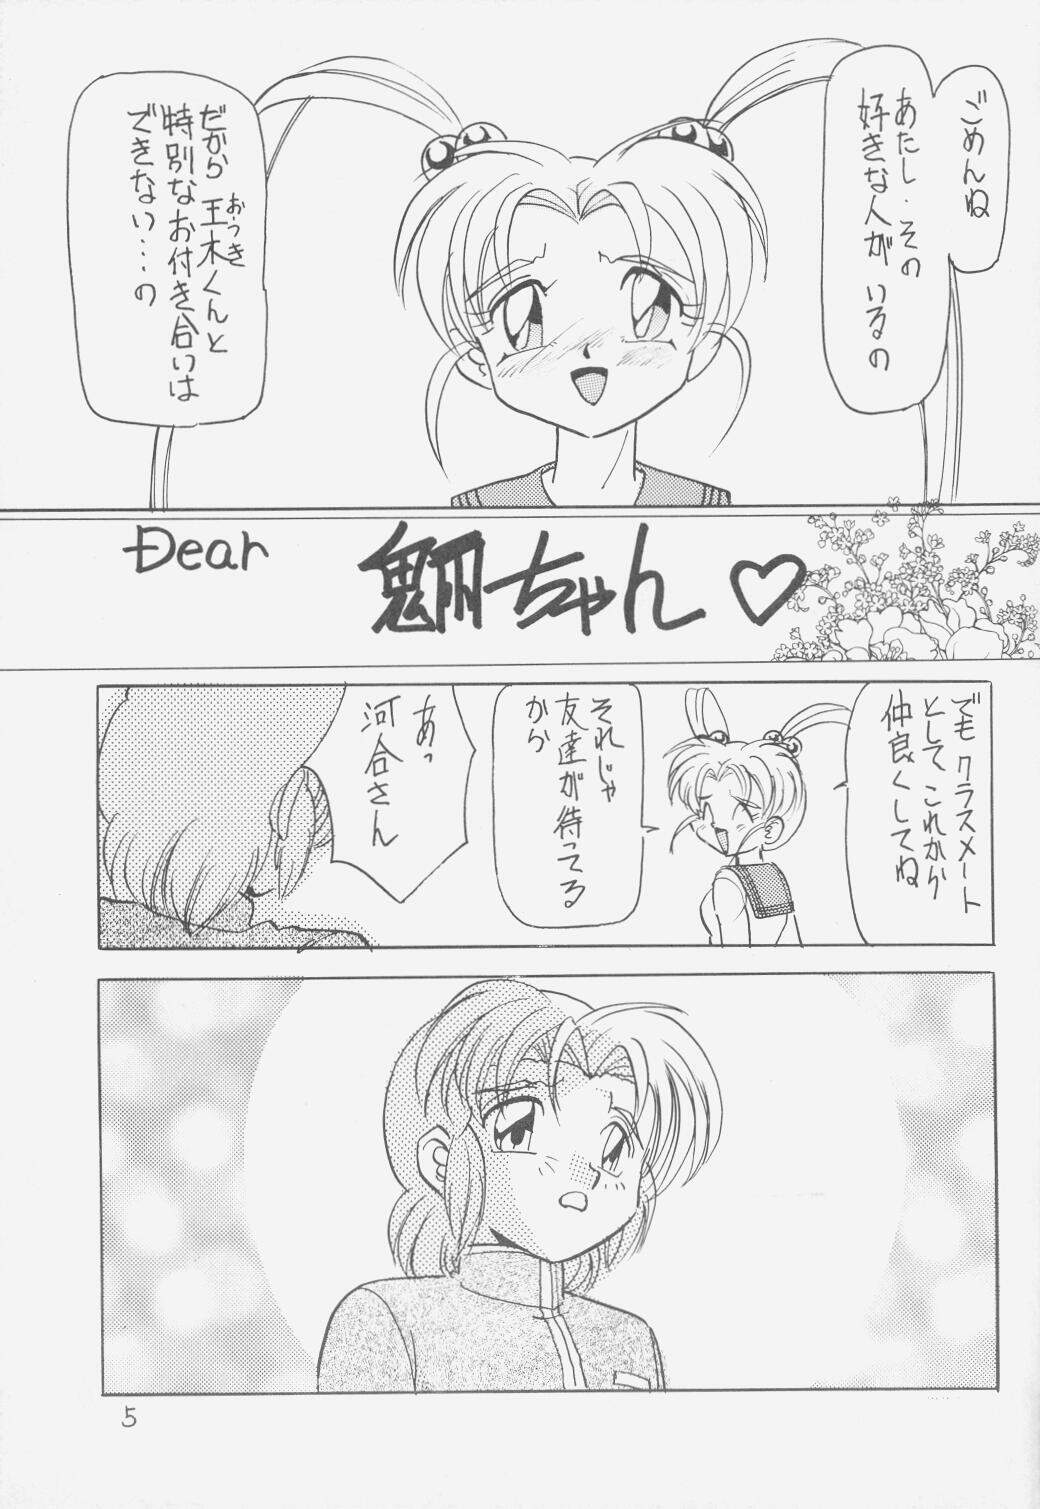 ごめんね
あたし、その
好きな人が いるの
だから 王木くんと
おうき
特別なお付き合いは
できない…の
Dear
ちゃん♡
でも クラスメート
として これから
仲良くしてね
それじゃ
友達が待ってる
から
あっ
河合さん
5